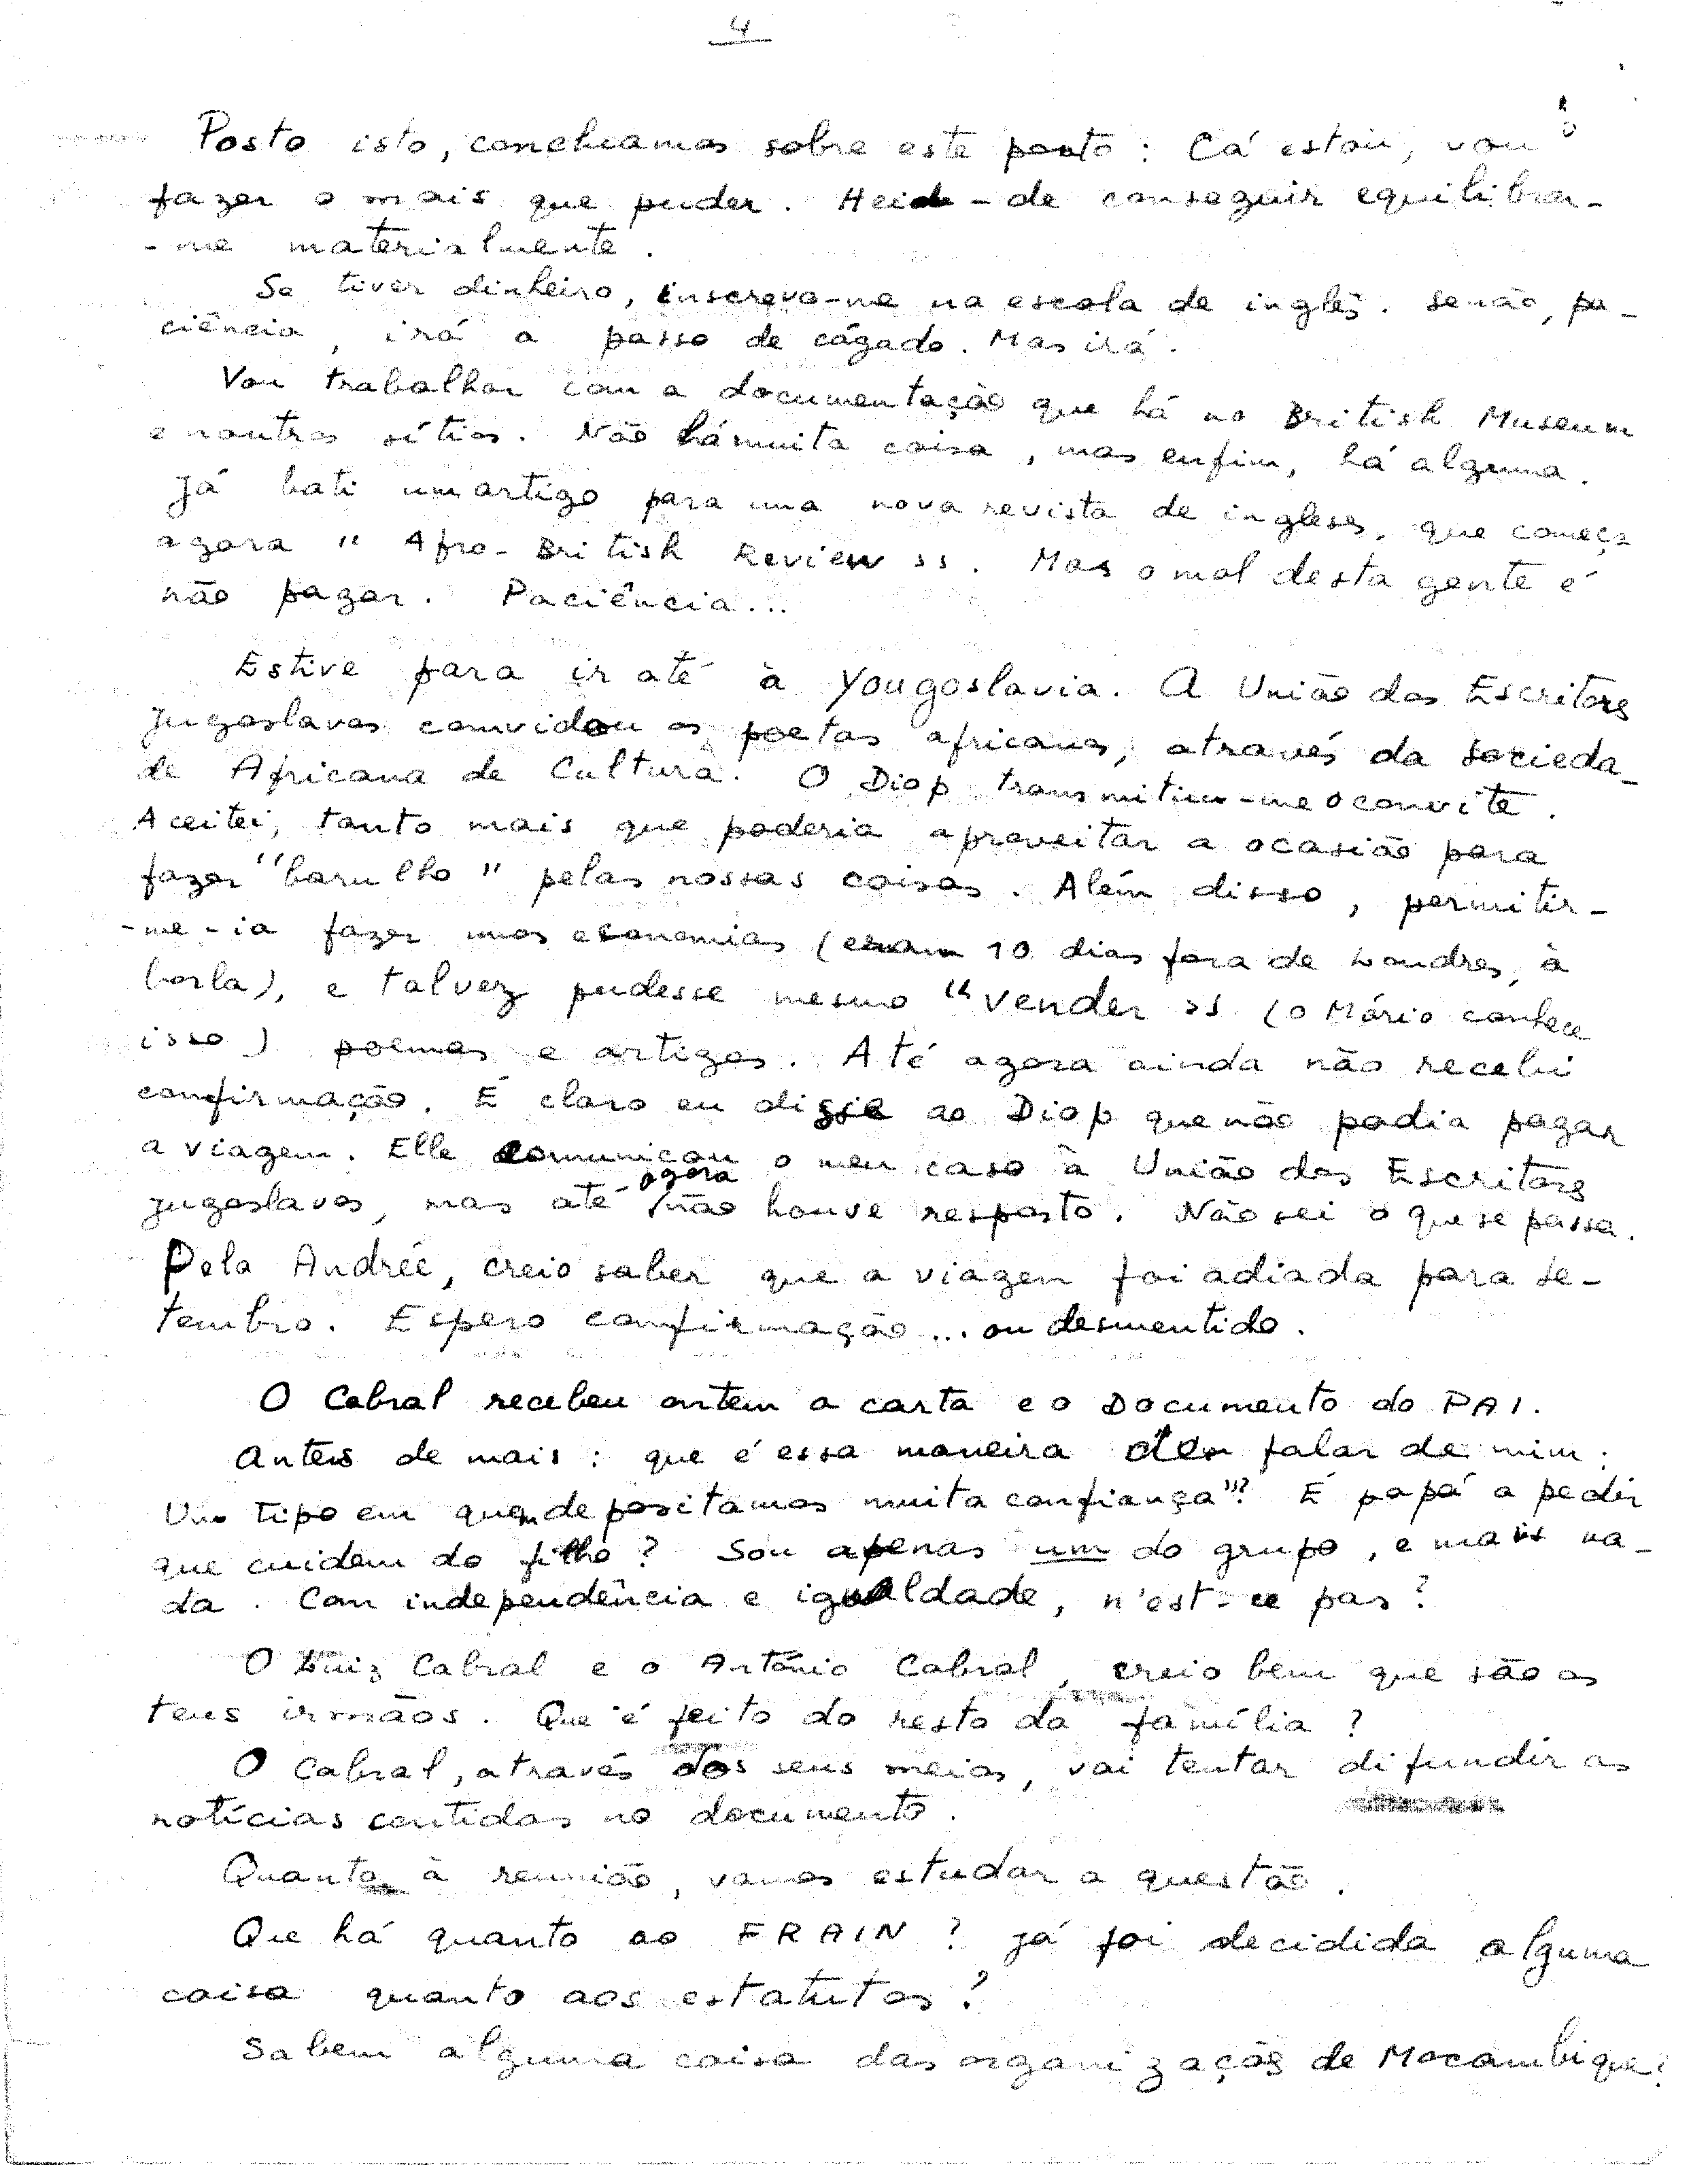 4
Posto isto, concluamos sobre este ponto : Cá estou, vou
fazer o mais que puder. Hei-de conseguir equilibrar-
-me materialmente.
Se tiver dinheiro, inscrevo-me na escola de inglês. Senão, pa-
ciência, irá a passo de cágado. Mas irá.
Vou trabalhar com a documentação que há no British Museum
e noutros sítios. Não há muita coisa, mas enfim, há alguma.
Já bati um artigo para uma nova revista de ingleses, que começa
agora "Afro-British Review". Mas o mal desta gente é
não pagar. Paciência...
Estive para ir até à Yougoslavia. A União dos Escritores
jugoslavos convidou os poetas africanos, através da Socieda-
de Africana de Cultura. O Diop transmitiu-me o convite.
Aceitei, tanto mais que poderia aproveitar a ocasião para
fazer "barulho" pelas nossas coisas. Além disso, permitir-
-me-ia fazer umas economias (eram 10 dias fora de Londres, à
borla), e talvez pudesse mesmo "vender" (o Mário conhece
isso) poemas e artigos. Até agora ainda não recebi
confirmação. É claro eu disse ao Diop que não podia pagar
a viagem. Elle comunicou o meu caso à União dos Escritores
jugoslavos, mas até agora não houve resposta. Não sei o que se passa.
Pela Andrée, creio saber que a viagem foi adiada para Se-
tembro. Espero confirmação... ou desmentido.
O Cabral recebeu ontem a carta e o Documento do PAI.
Antes de mais : que é essa maneira de falar de mim :
Um tipo em quem depositamos muita confiança"? É papá a pedir
que cuidem do filho? Sou apenas um do grupo, e mais na-
da. Com independência e igualdade, n'est-ce pas?
O Luiz Cabral e o António Cabral, creio bem que são os
teus irmãos. Que é feito do resto da família ?
O Cabral, através dos seus meios, vai tentar difundir as
notícias contidas no documento.
Quanto à reunião, vamos estudar a questão.
Que há quanto ao FRAIN ? Já foi decidida alguma
coisa quanto aos estatutos ?
Sabem alguma coisa das organizações de Mocambique?